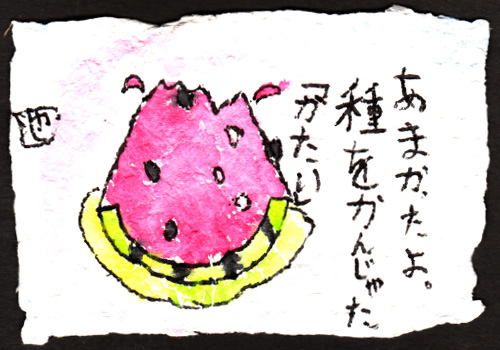 あまかったよ。
種をかんじゃた
「がたい」